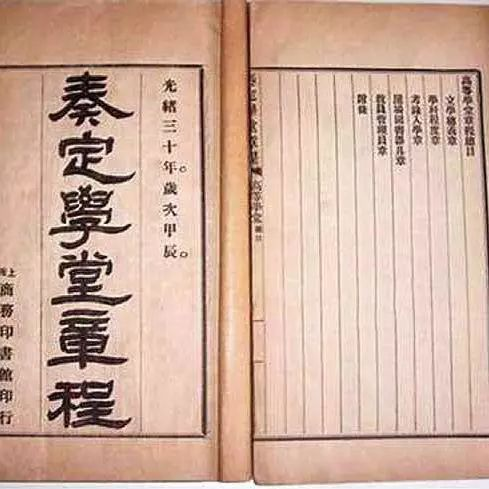 光緒三十年歲次甲辰
奏定學堂章程
上海商務印書館印行
高等學堂章程總目
立學總義章
學科程度章
考錄入學章
屋場圖書器具章
教員管理員章
附條
高等學堂